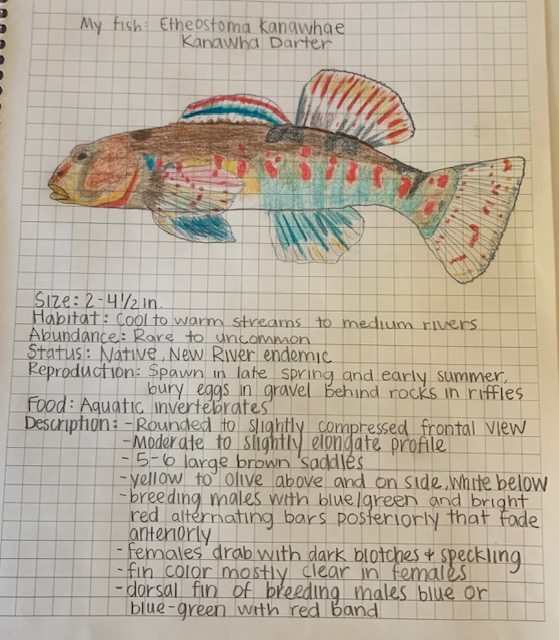 My fish: Etheostoma kanawhae
Kanawha Darter
Size: 2-4 1/2 in.
Habitat: Cool to warm streams to medium rivers
Abundance: Rare to uncommon
Status: Native, New River endemic
Reproduction: Spawn in late spring and early summer,
bury eggs in gravel behind rocks in riffles
Food: Aquatic invertebrates
Description: - Rounded to slightly compressed frontal view
- Moderate to slightly elongate profile
- 5-6 large brown saddles
- yellow to olive above and on side, white below
- breeding males with blue/green and bright
red alternating bars posteriorly that fade
anteriorly
- females drab with dark blotches + speckling
- fin color mostly clear in females
- dorsal fin of breeding males blue or
blue-green with red band